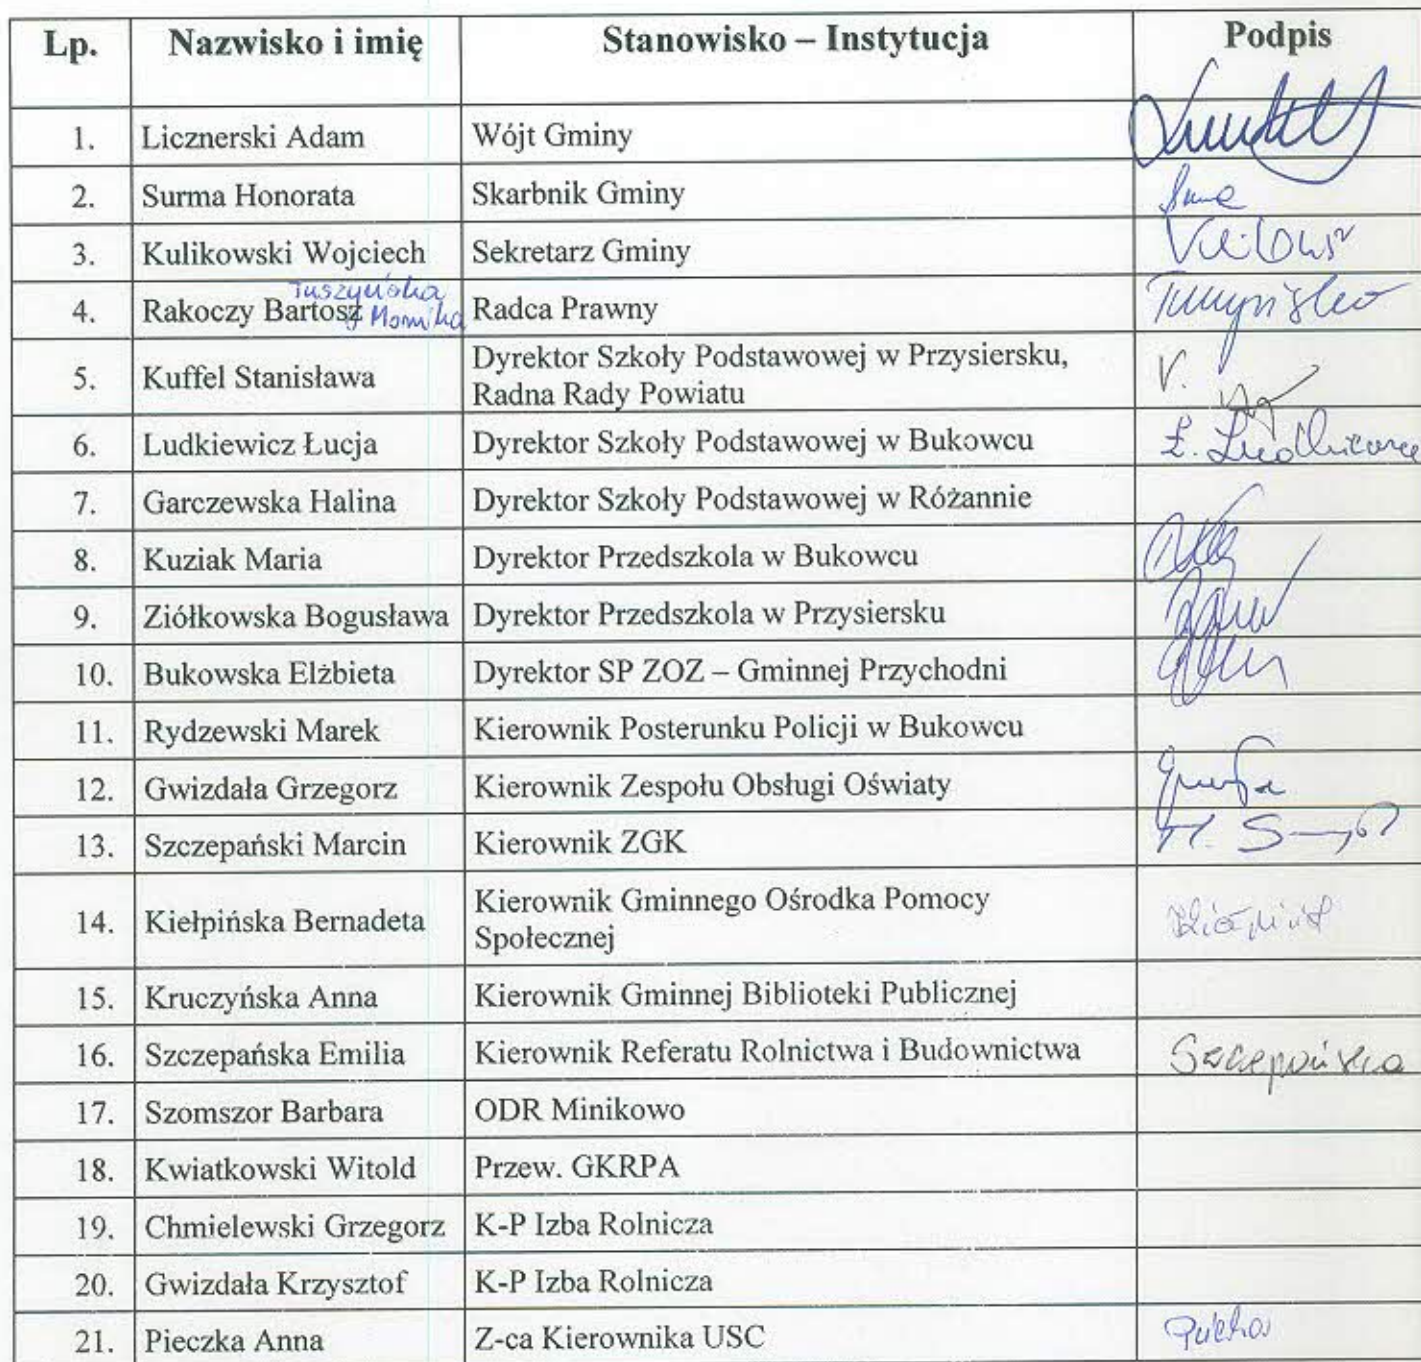 Lp. Nazwisko i imię Stanowisko – Instytucja Podpis
1. Licznerski Adam Wójt Gminy
2. Surma Honorata Skarbnik Gminy
3. Kulikowski Wojciech Sekretarz Gminy
Tuszyńska
4. Rakoczy Bartosz Monika Radca Prawny
Dyrektor Szkoły Podstawowej w Przysiersku,
5. Kuffel Stanisława
Radna Rady Powiatu
6. Ludkiewicz Łucja Dyrektor Szkoły Podstawowej w Bukowcu
7. Garczewska Halina Dyrektor Szkoły Podstawowej w Różannie
8. Kuziak Maria Dyrektor Przedszkola w Bukowcu
9. Ziółkowska Bogusława Dyrektor Przedszkola w Przysiersku
10. Bukowska Elżbieta Dyrektor SP ZOZ – Gminnej Przychodni
11. Rydzewski Marek Kierownik Posterunku Policji w Bukowcu
12. Gwizdała Grzegorz Kierownik Zespołu Obsługi Oświaty
13. Szczepański Marcin Kierownik ZGK
Kierownik Gminnego Ośrodka Pomocy
14. Kiełpińska Bernadeta
Społecznej
15. Kruczyńska Anna Kierownik Gminnej Biblioteki Publicznej
16. Szczepańska Emilia Kierownik Referatu Rolnictwa i Budownictwa Szczepańska
17. Szomszor Barbara ODR Minikowo
18. Kwiatkowski Witold Przew. GKRPA
19. Chmielewski Grzegorz K-P Izba Rolnicza
20. Gwizdała Krzysztof K-P Izba Rolnicza
21. Pieczka Anna Z-ca Kierownika USC